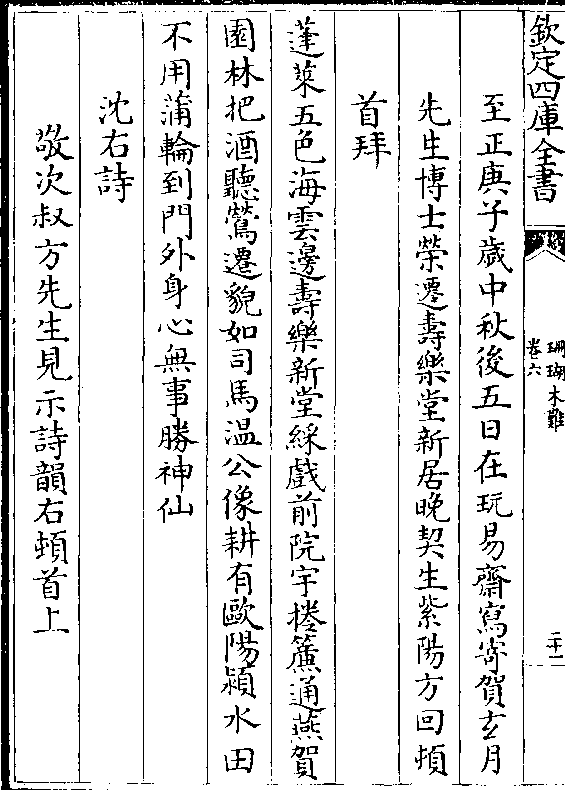 欽定四庫全書
珊瑚木難
卷六
二十一
至正庚子歲中秋後五日在玩易齋寫寄賀玄月
先生博士榮遷壽樂堂新居晚契生紫陽方回頓
首拜
蓬萊五色海雲邊壽樂新堂綵戲前院宇捲簾通燕賀
園林把酒聽鶯遷貌如司馬溫公像耕有歐陽潁水田
不用蒲輪到門外身心無事勝神仙
沈右詩
敬次叔方先生見示詩韻右頓首上